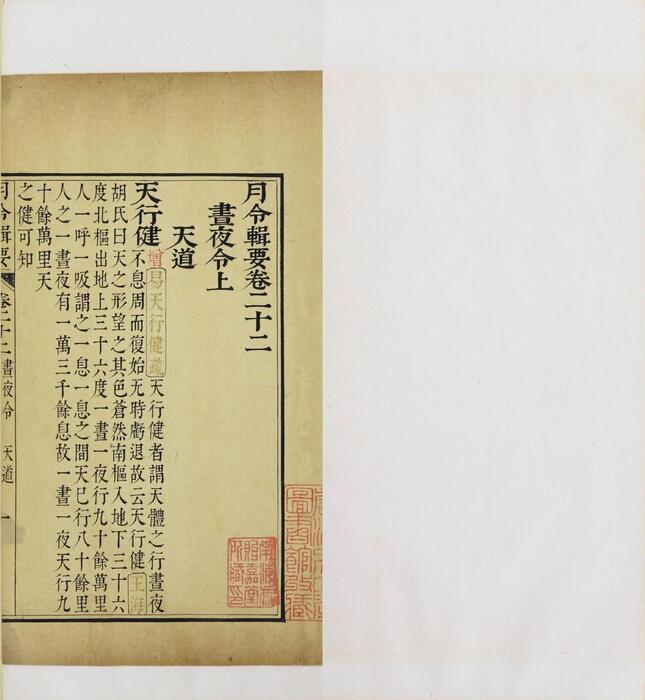 月令輯要卷二十二
晝夜令上
天道
天行健增易天行健疏天行健者謂天體之行晝夜
不息周而復始无時虧退故云天行健玉海
胡氏曰天之形望之其色蒼然南樞入地下三十六
度北樞出地上三十六度一晝一夜行九十餘萬里
人一呼一吸謂之一息一息之間天已行八十餘里
人之一晝夜有一萬三千餘息故一晝一夜天行九
十餘萬里天
之健可知
月令輯要 卷二十二晝夜令 天道 一